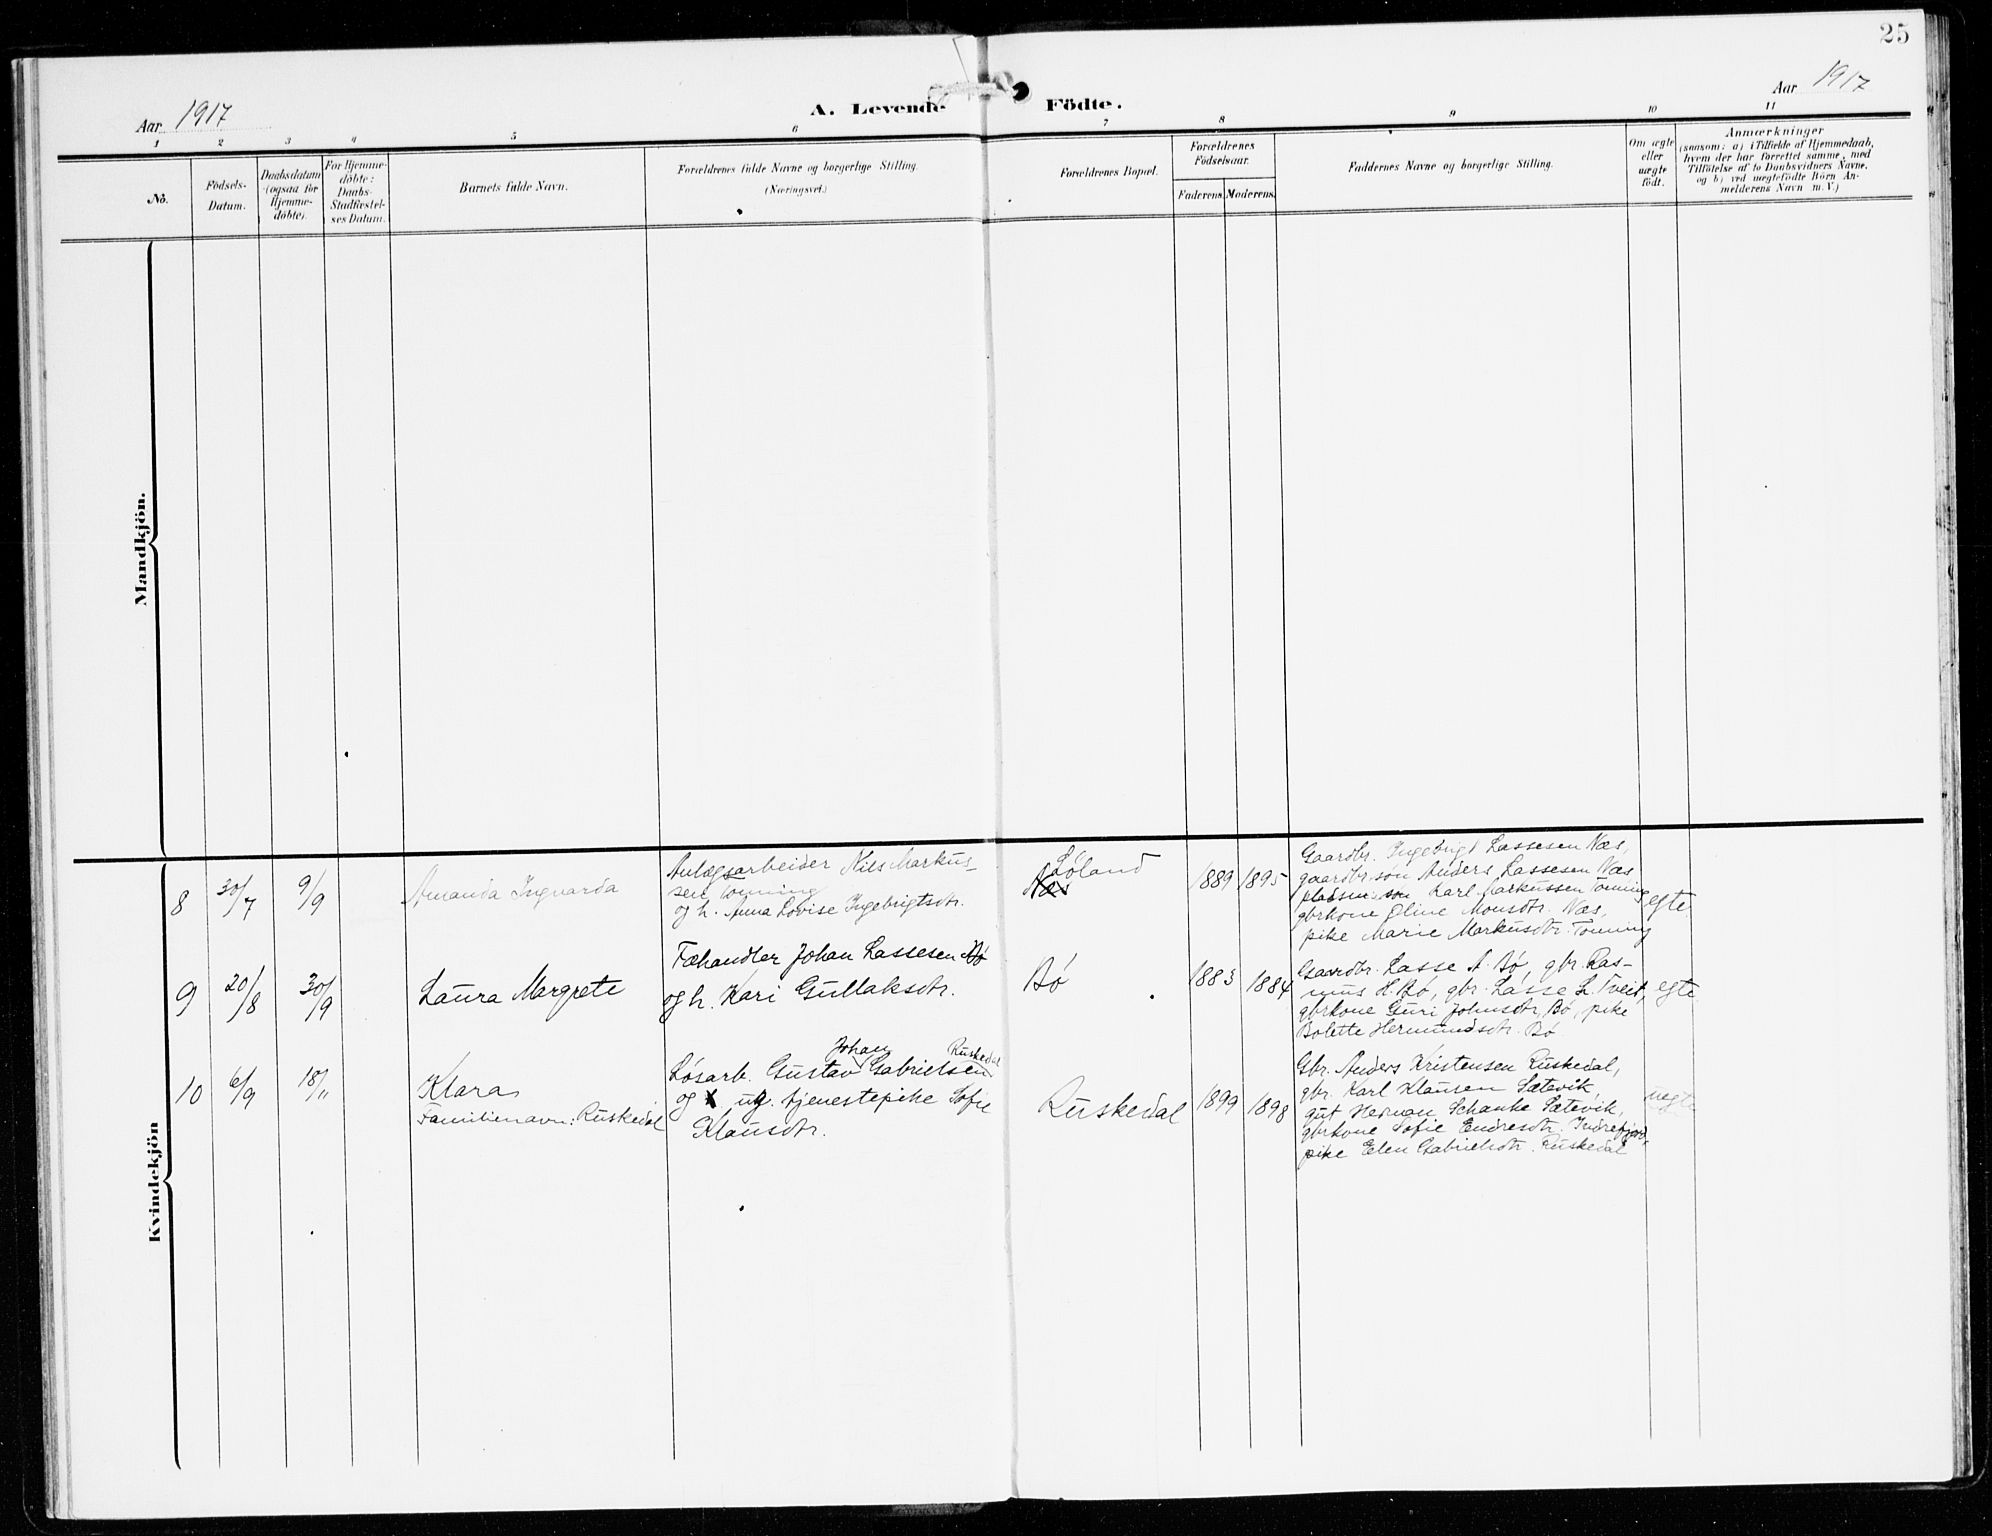 25
Aar 1917
A. Levende Födte.
Aar 1917
1 2 3 4 5 6 7 8 9 10 11
No.
Födsels-
Datum.
Daabsdatum
(ogsaa for
Hjemme-
döbte).
For Hjemme-
döbte:
Daabs-
Stadfæstel-
ses Datum.
Barnets fulde Navn.
Forældrenes fulde Navne og borgerlige Stilling.
(Næringsvei.)
Forældrenes Bopæl.
Forældrenes
Födselsaar.
Faderens. Moderens.
Faddernes Navne og borgerlige Stilling.
Om ægte
eller
uægte
födt.
Anmærkninger
(saasom: a) i Tilfælde af Hjemmedaab,
hvem der har forrettet samme, med
Tilföielse af to Daabsvidners Navne,
og b) ved uægtefödte Börn An-
melderens Navn m. V.)
Mandkjön.
Kvindekjön
8
30/7
9/9
Amanda Ingvarda
Anlægsarbeider Nils Markus-
sen Tonning
og h. Anna Lovise Ingebrigtsdtr.
Løland
Næs
1889 1895
Gaardbr. Ingebrigt Lassesen Næs,
gaardbr.son Anders Lassesen Næs
pladsm. son Karl Markussen Tonning
gbrkone Oline Monsdtr. Næs,
pike Marie Markusdtr. Tonning
egte.
9
20/8
30/9
Laura Margrete
Fæhandler Johan Lassesen Bø
og h. Kari Gullaksdtr.
Bø
1883 1884
Gaardbr. Lasse A. Bø, gbr. Ras-
mus H. Bø, gbr. Lasse L. Tveit,
gbrkone Guri Johnsdtr. Bø, pike
Bolette Hermundsdtr. Bø
egte
10
6/9
18/11
Klara
Familienavn: Ruskedal
Johan Ruskedal
Løsarb. Gustav Gabrielsen
og ug. tjenestepike Sofie
Klausdtr.
Ruskedal
1899 1898
Gbr. Anders Kristensen Ruskedal,
gbr. Karl Klausen Sætevik
gut Herman Schanke Sætevik,
gbrkone Sofie Endresdtr. Indrefjord,
pike Elen Gabrielsdtr. Ruskedal
uegte